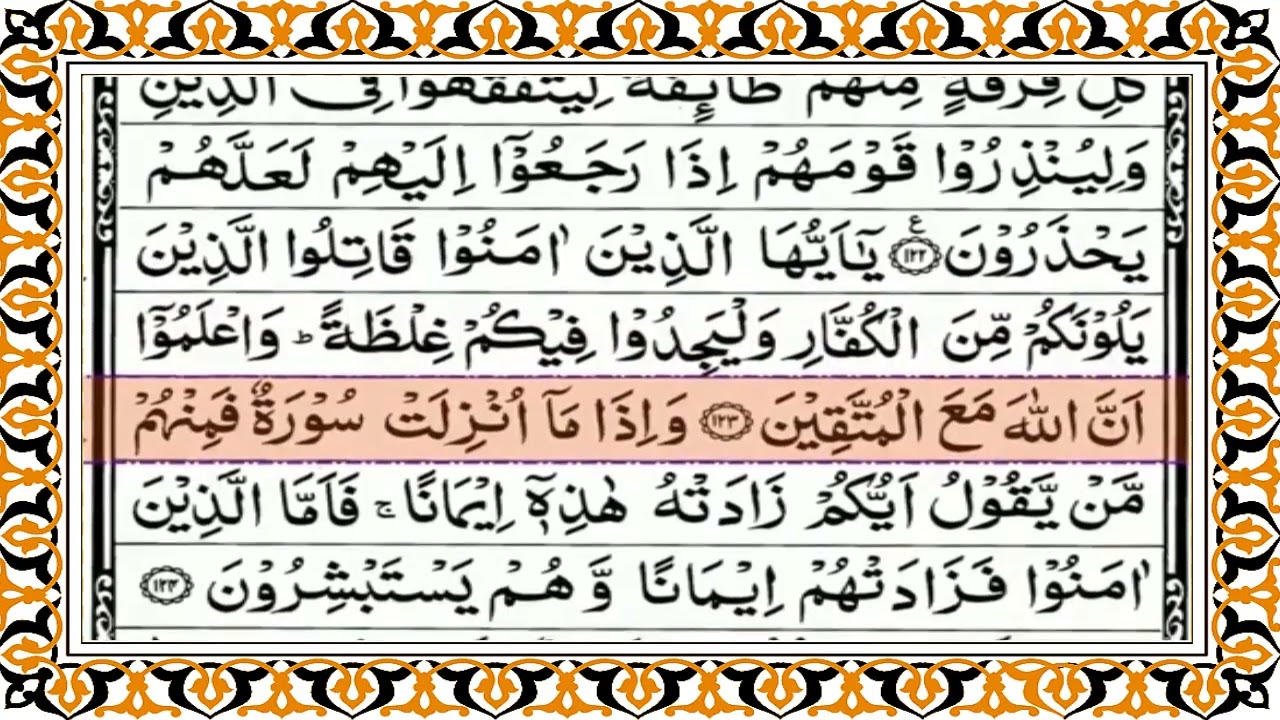 كُلِّ فِرْقَةٍ مِّنْهُمْ طَآئِفَةٌ لِّيَتَفَقَّهُوْا فِى الدِّيْنِ
وَلِيُنْذِرُوْا قَوْمَهُمْ اِذَا رَجَعُوْٓا اِلَيْهِمْ لَعَلَّهُمْ
يَحْذَرُوْنَ ۝١٢٢ ع يٰٓاَيُّهَا الَّذِيْنَ اٰمَنُوْا قَاتِلُوا الَّذِيْنَ
يَلُوْنَكُمْ مِّنَ الْكُفَّارِ وَلْيَجِدُوْا فِيْكُمْ غِلْظَةً ؕ وَاعْلَمُوْٓا
اَنَّ اللّٰهَ مَعَ الْمُتَّقِيْنَ ۝١٢٣ وَاِذَا مَآ اُنْزِلَتْ سُوْرَةٌ فَمِنْهُمْ
مَّنْ يَّقُوْلُ اَيُّكُمْ زَادَتْهُ هٰذِهٖٓ اِيْمَانًا ۚ فَاَمَّا الَّذِيْنَ
اٰمَنُوْا فَزَادَتْهُمْ اِيْمَانًا وَّهُمْ يَسْتَبْشِرُوْنَ ۝١٢٤